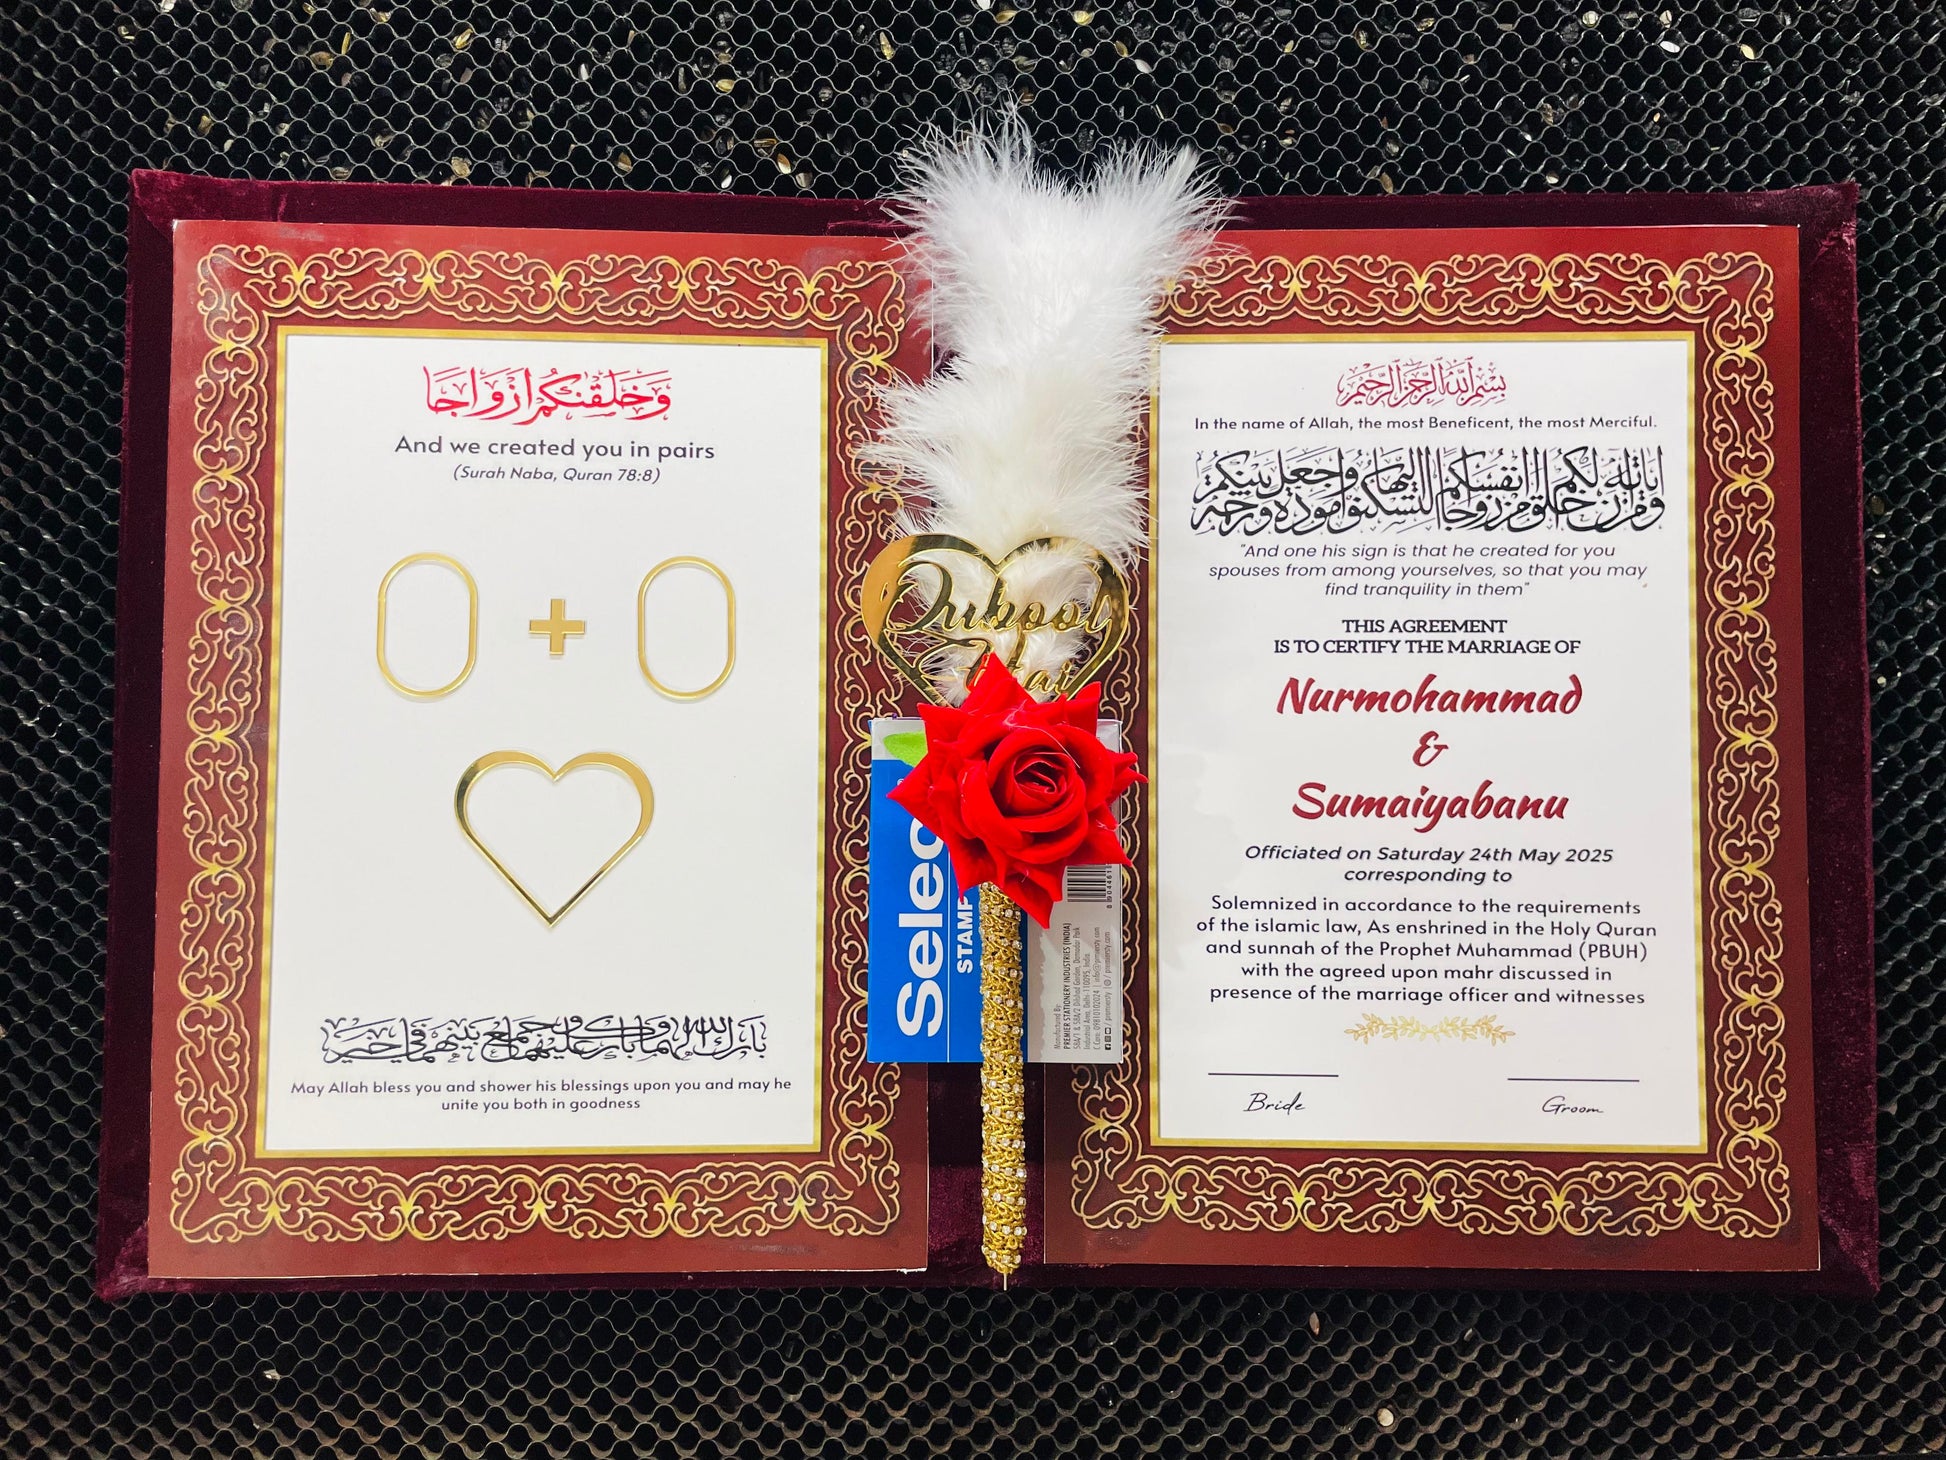 وَخَلَقْنَكُمْ أَزْوَاجًا
And we created you in pairs
(Surah Naba, Quran 78:8)
بَارَكَ اللَّهُ لَكُمَا وَبَارَكَ عَلَيْكُمَا وَجَمَعَ بَيْنَكُمَا فِي خَيْرٍ
May Allah bless you and shower his blessings upon you and may he
unite you both in goodness
Qubool
Hai
Selec
STAMP
Manufactured By:
PREMIER STATIONERY INDUSTRIES (INDIA)
بِسْمِ اللَّهِ الرَّحْمَنِ الرَّحِيمِ
In the name of Allah, the most Beneficent, the most Merciful.
وَمِنْ آيَاتِهِ أَنْ خَلَقَ لَكُم مِّنْ أَنفُسِكُمْ أَزْوَاجًا لِّتَسْكُنُوا إِلَيْهَا وَجَعَلَ بَيْنَكُم مَّوَدَّةً وَرَحْمَةً
"And one his sign is that he created for you
spouses from among yourselves, so that you may
find tranquility in them"
THIS AGREEMENT
IS TO CERTIFY THE MARRIAGE OF
Nurmohammad
&
Sumaiyabanu
Officiated on Saturday 24th May 2025
corresponding to
Solemnized in accordance to the requirements
of the islamic law, As enshrined in the Holy Quran
and sunnah of the Prophet Muhammad (PBUH)
with the agreed upon mahr discussed in
presence of the marriage officer and witnesses
Bride
Groom